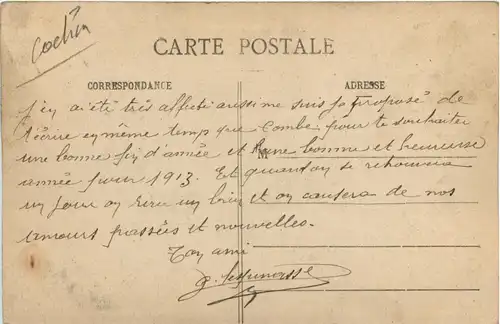 Cochin
CARTE POSTALE
CORRESPONDANCE
ADRESSE
j'en ai été très affecté aussi me suis je proposé de
t'écrire en même temps que Combe pour te souhaiter
une bonne fin d'année et une bonne et heureuse
M
année pour 1913. Et quand on se retrouvera
un jour on rira un brin et on causera de nos
amours passées et nouvelles.
Ton ami